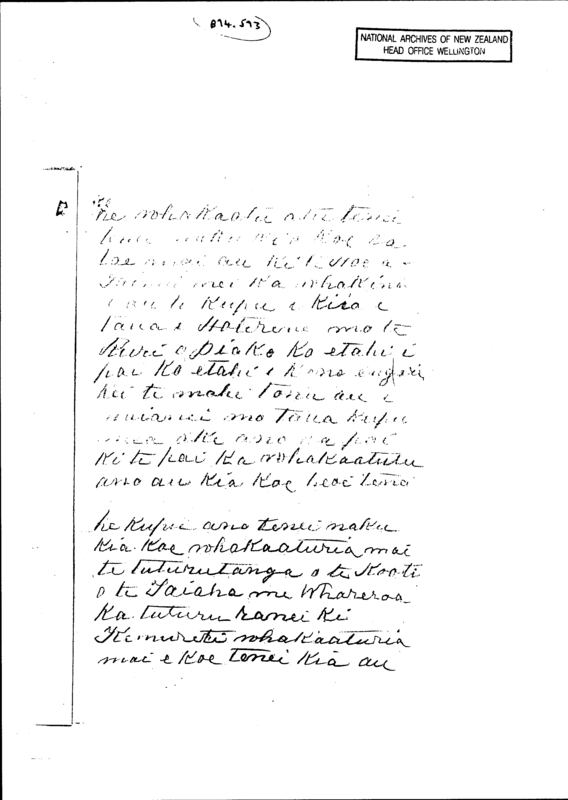 874.593
NATIONAL ARCHIVES OF NEW ZEALAND
HEAD OFFICE WELLINGTON
he whakaatu atu tenei
naku kia koe
mai au ki te
mei ka whakina
e au te kupu i kiia e
taua i Hoterene mo te
Huri o Piako ko etahi i
pai ko etahi i kono engari
kei te mahi tonu au i
naianei mo taua kupu
ake ano pai
ki te pai ka whakaatutu
ano au kia koe heoi tena
he kupu ano tenei naku
kia koe whakaaturia mai
te tuturutanga o te Kooti
o te Taiaha me Whareroa
ka tuturu ranei ki
Kemureti whakaaturia
mai e koe tenei kia au